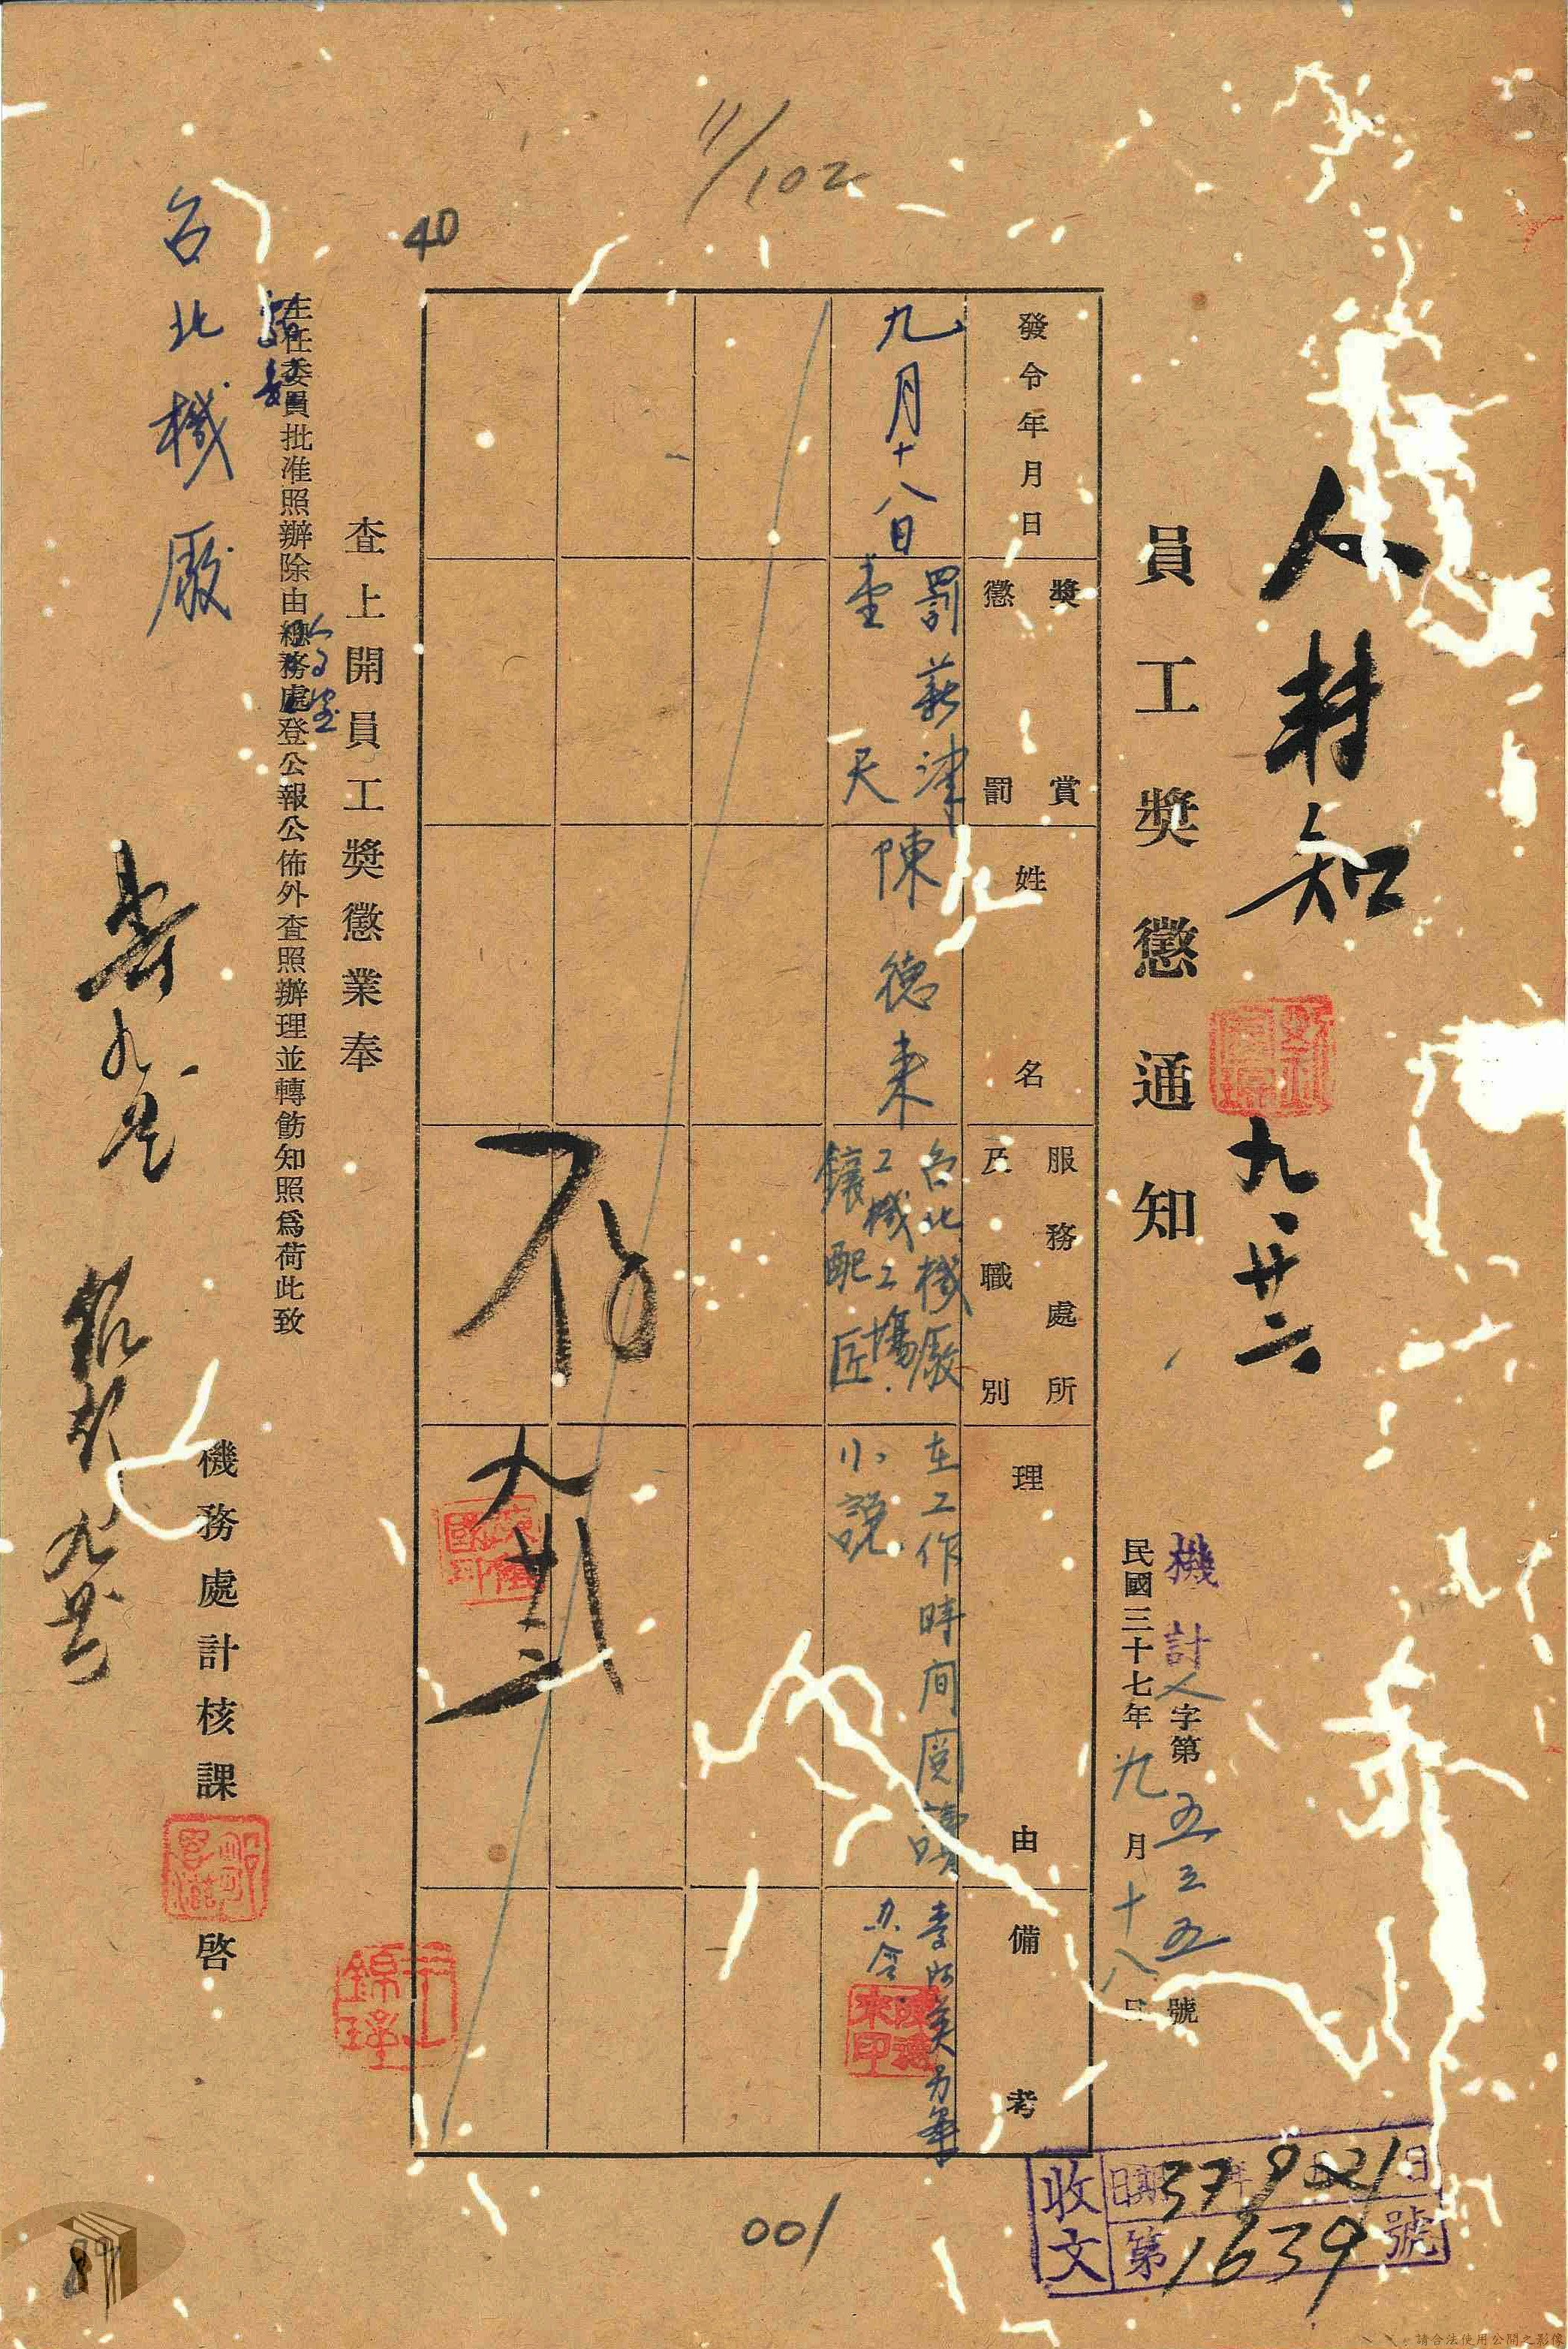 11/102
40
人 封 知
九、廿六
員工獎懲通知
機計人字第五三五號
民國三十七年九月十八日
發令年月日
獎賞
懲罰
姓名
服務處所
及職別
理由
備考
九月十八日
罰薪津
壹天
陳德来
台北機廠
工機工場
鑲配匠
在工作時間閱讀
小說
办令
九 廿三
查上開員工獎懲業奉
主任委員批准照辦除由總務處登公報公佈外查照辦理並轉飭知照爲荷此致
台北機廠
機務處計核課
啓
收文
日期 37 年 9 月 21 日
第 1639 號
001
89
請合法使用公開之影像